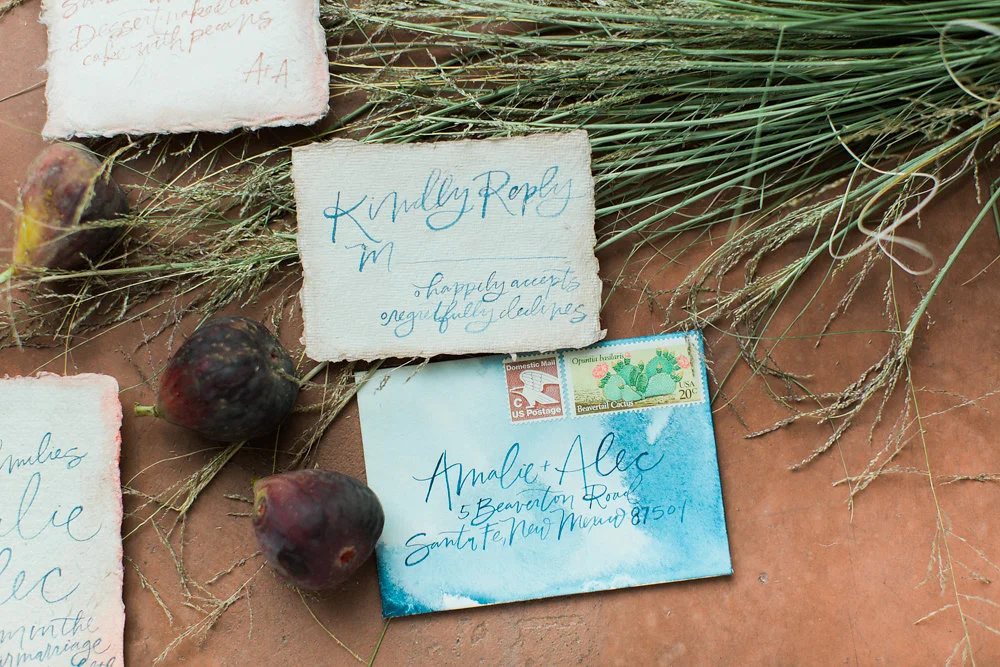 Dessert naked
cake with pecans
A+A
Kindly Reply
M
happily accepts
regretfully declines
Domestic Mail
C
US Postage
Opuntia basilaris
USA
20c
Beavertail Cactus
Amalie + Alec
5 Beaverton Road
Santa Fe, New Mexico 87501
milies
lie
lec
in the
marriage